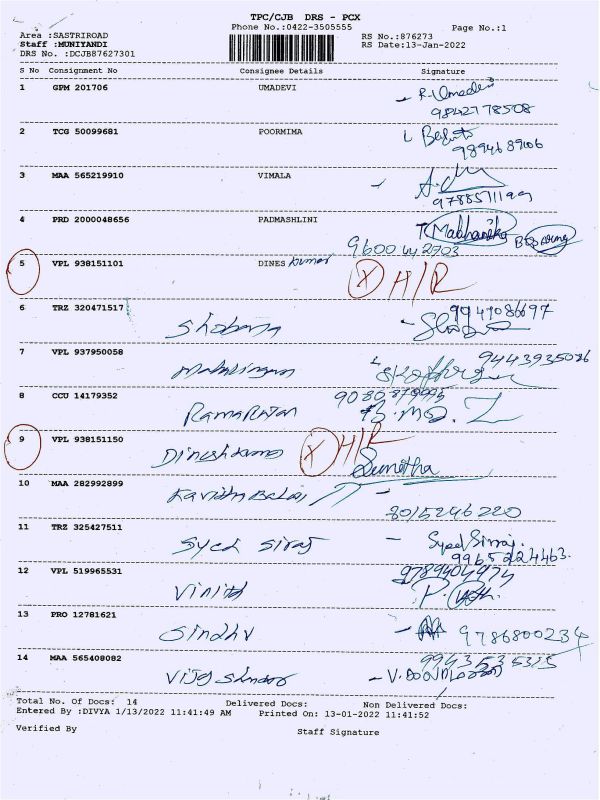 TPC/CJB DRS - PCX
Phone No.:0422-3505555 Page No.:1
Area :SASTRIROAD RS No.:876273
Staff :MUNIYANDI RS Date:13-Jan-2022
DRS No. :DCJB87627301
S No Consignment No Consignee Details Signature
1 GPM 201706 UMADEVI R. Umadevi
9842778508
2 TCG 50099681 POORMIMA
9894689106
3 MAA 565219910 VIMALA
9788571199
4 PRD 2000048656 PADMASHLINI
9600442703
5 VPL 938151101 DINES kumar X H/R
6 TRZ 320471517 9947086697
Shobana
7 VPL 937950058 9443935036
8 CCU 14179352
9 VPL 938151150 Dineshkumar X H/R
Sumitha
10 MAA 282992899
8015246220
11 TRZ 325427511
Syed Siraj Syed Siraj.
9965224463.
12 VPL 519965531 9789404974
Vinith
13 PRO 12781621
Sindhu 9786800234
14 MAA 565408082
Total No. Of Docs: 14 Delivered Docs: Non Delivered Docs:
Entered By :DIVYA 1/13/2022 11:41:49 AM Printed On: 13-01-2022 11:41:52
Verified By Staff Signature